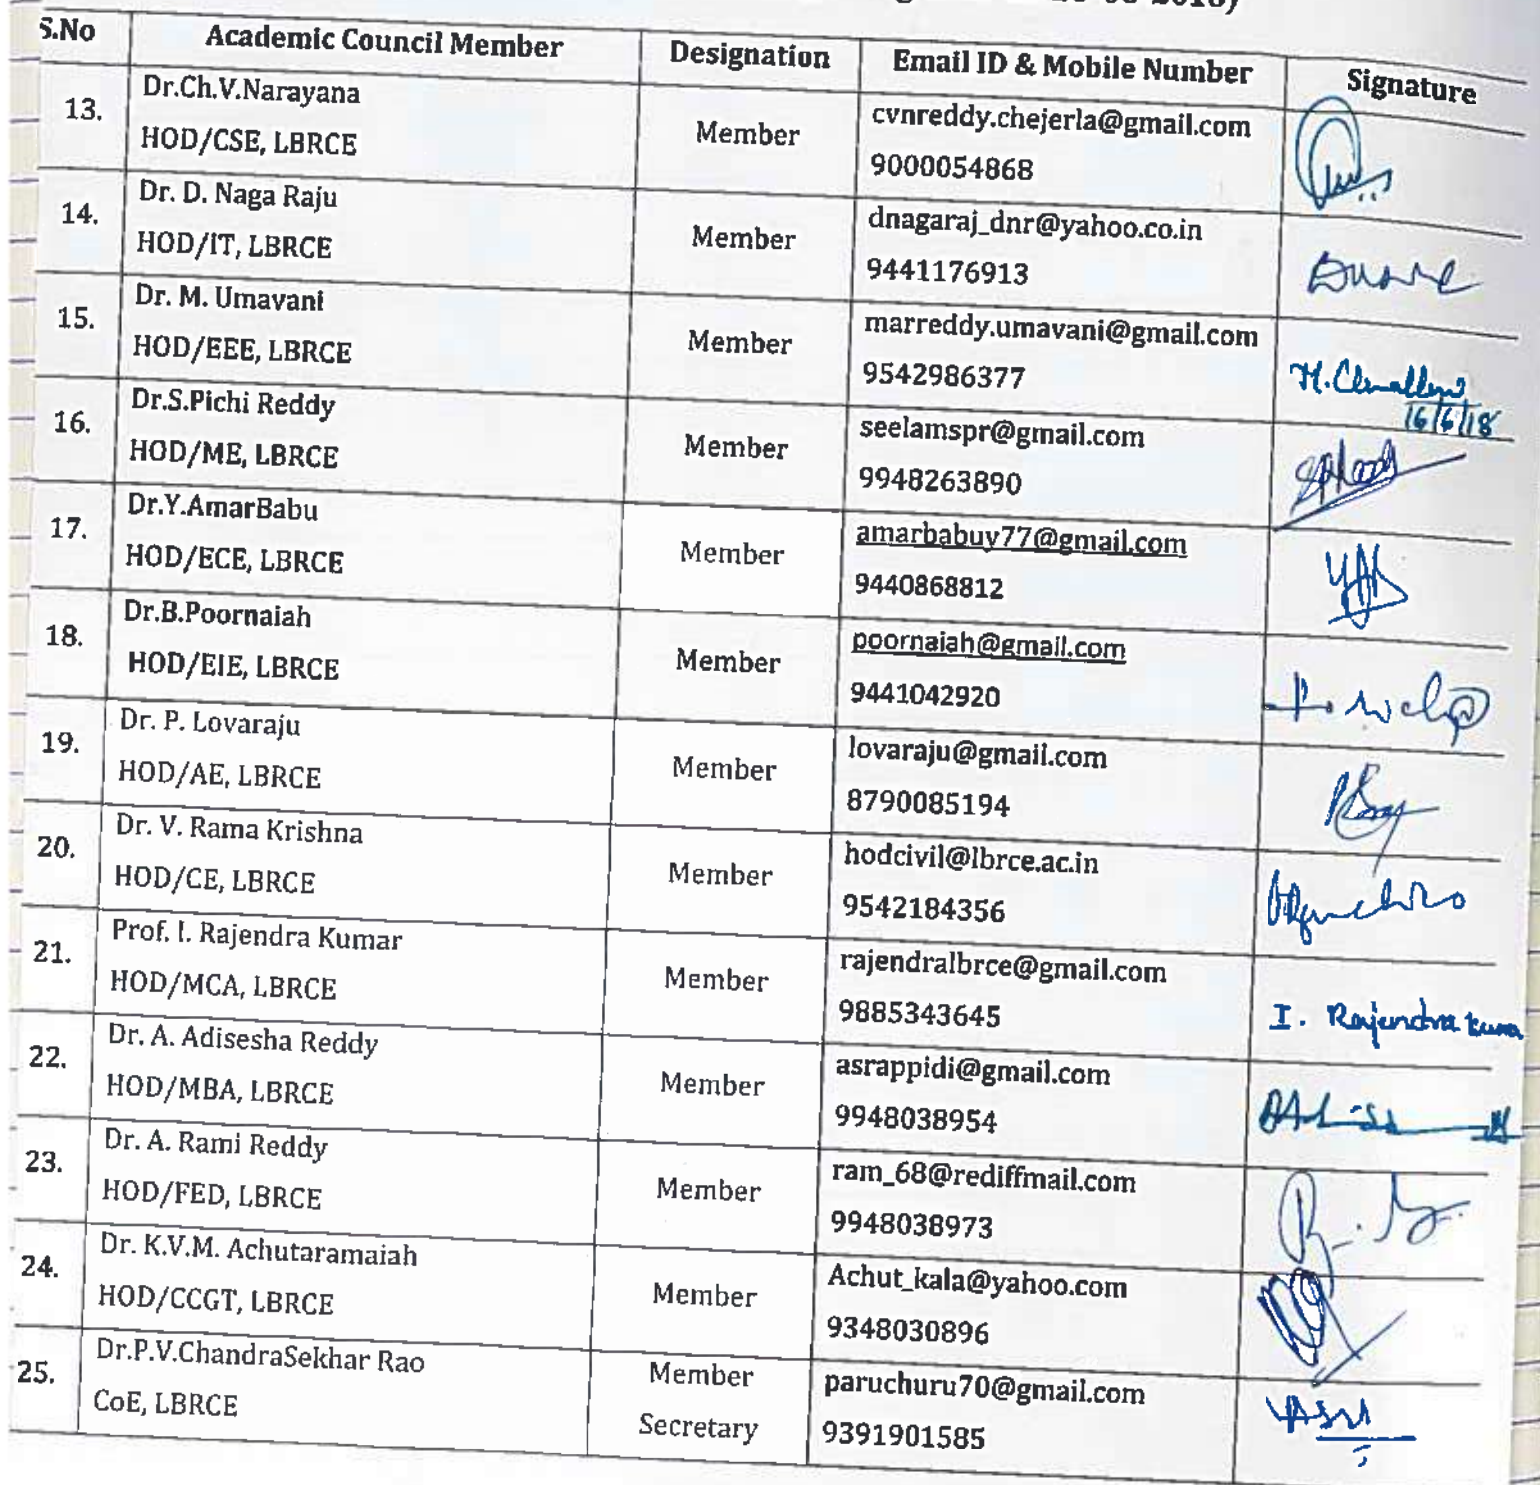 S.No Academic Council Member Designation Email ID & Mobile Number Signature
13. Dr.Ch.V.Narayana
HOD/CSE, LBRCE Member cvnreddy.chejerla@gmail.com
9000054868
14. Dr. D. Naga Raju
HOD/IT, LBRCE Member dnagaraj_dnr@yahoo.co.in
9441176913
15. Dr. M. Umavani
HOD/EEE, LBRCE Member marreddy.umavani@gmail.com
9542986377
16/6/18
16. Dr.S.Pichi Reddy
HOD/ME, LBRCE Member seelamspr@gmail.com
9948263890
17. Dr.Y.AmarBabu
HOD/ECE, LBRCE Member amarbabuy77@gmail.com
9440868812
18. Dr.B.Poornaiah
HOD/EIE, LBRCE Member poornaiah@gmail.com
9441042920
19. Dr. P. Lovaraju
HOD/AE, LBRCE Member lovaraju@gmail.com
8790085194
20. Dr. V. Rama Krishna
HOD/CE, LBRCE Member hodcivil@lbrce.ac.in
9542184356
21. Prof. I. Rajendra Kumar
HOD/MCA, LBRCE Member rajendralbrce@gmail.com
9885343645 I. Rajendra
22. Dr. A. Adisesha Reddy
HOD/MBA, LBRCE Member asrappidi@gmail.com
9948038954
23. Dr. A. Rami Reddy
HOD/FED, LBRCE Member ram_68@rediffmail.com
9948038973
24. Dr. K.V.M. Achutaramaiah
HOD/CCGT, LBRCE Member Achut_kala@yahoo.com
9348030896
25. Dr.P.V.ChandraSekhar Rao
CoE, LBRCE Member Secretary paruchuru70@gmail.com
9391901585